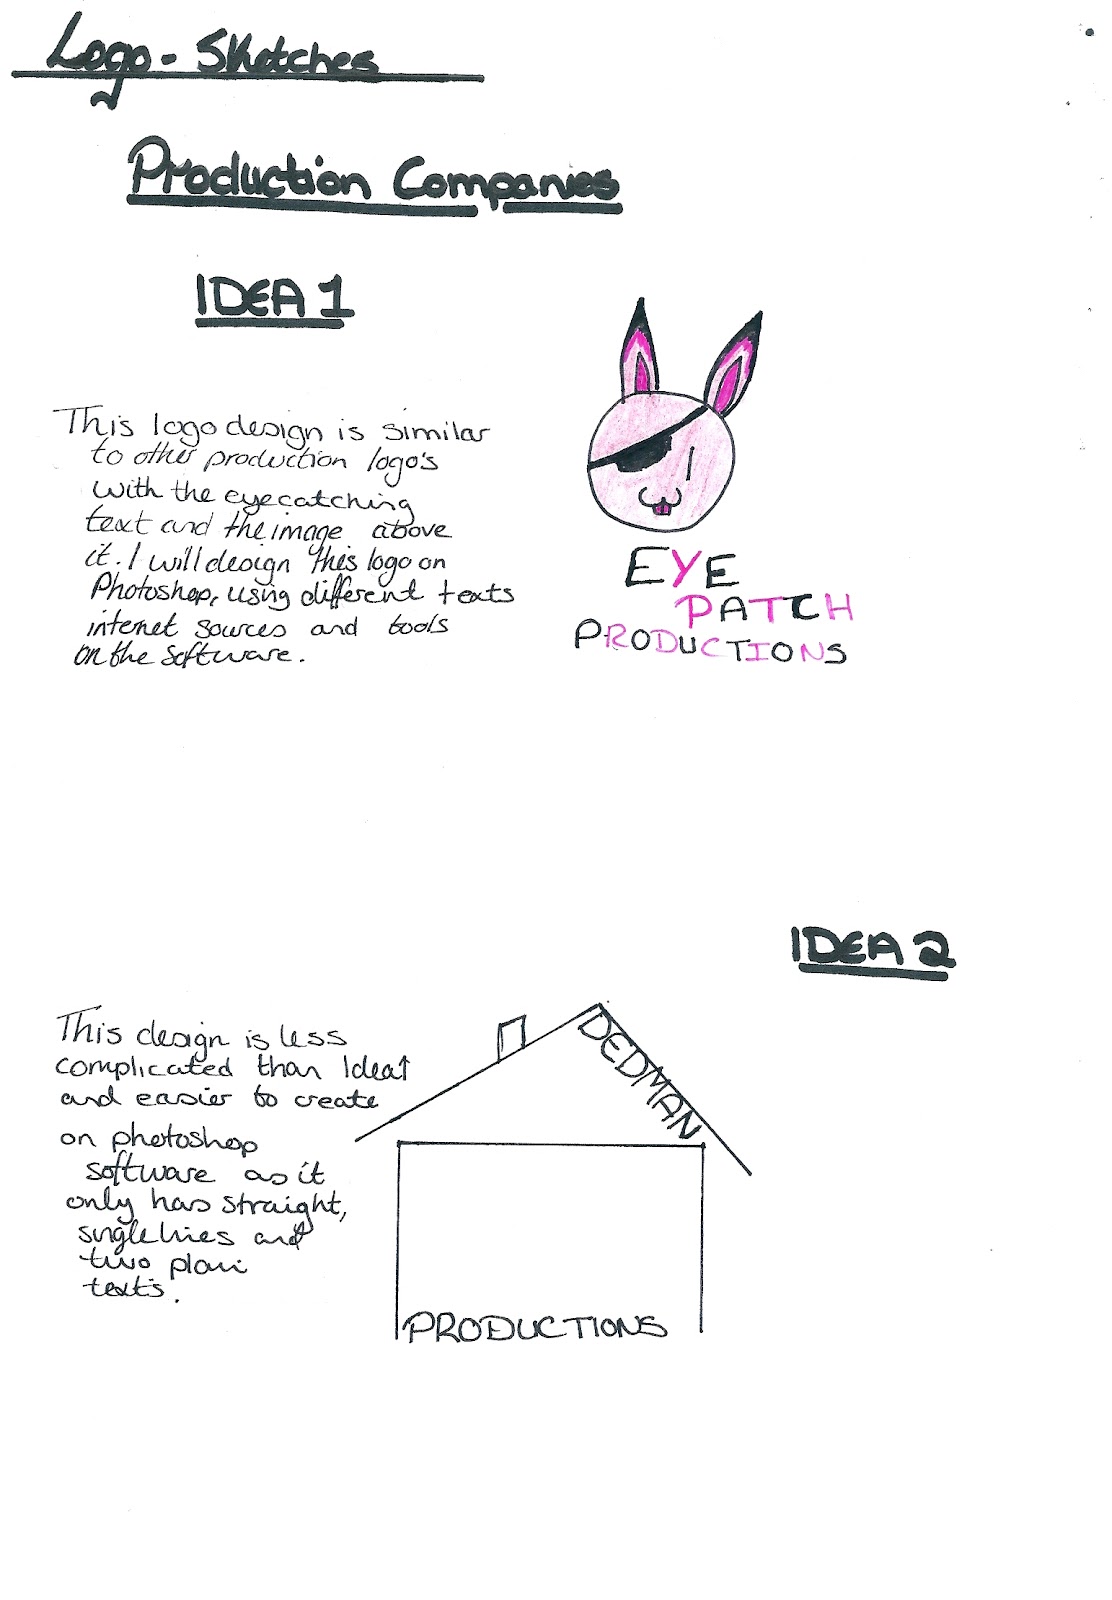 Logo - Sketches
Production Companies
IDEA 1
This logo design is similar
to other production logo's
with the eyecatching
text and the image above
it. I will design this logo on
Photoshop, using different texts
internet sources and tools
on the software.
EYE
PATCH
PRODUCTIONS
IDEA 2
This design is less
complicated than Idea1
and easier to create
on photoshop
software as it
only has straight,
single lines and
two plain
texts.
DEDMAN
PRODUCTIONS